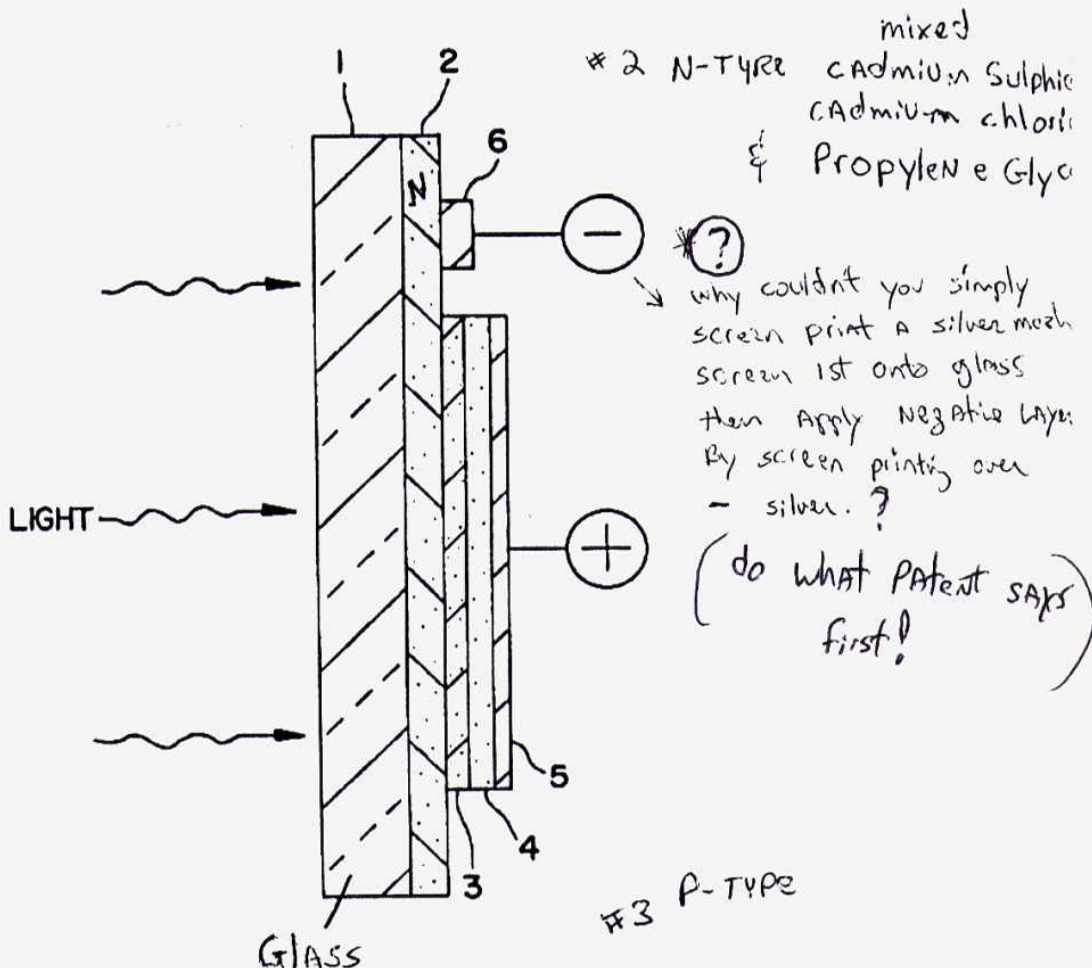 mixed
1 2 # 2 N-TYPE CAdmiuм Sulphi
cAdmiuм chlori
6 & PropyleNe Glyc
N
− * ?
why couldnt you simply
screen print A silver mesh
screen 1st onto glass
then Apply NegAtive LAye
By screen printing over
LIGHT − silver. ?
+ (do whAt PAteNt sAys
first!)
5
4
3
#3 P-TYPE
GlASS